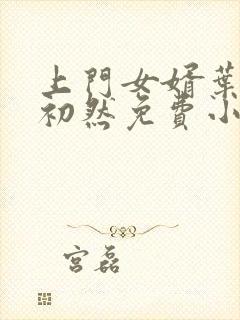 上門女婿葉
初然免費小
宮磊